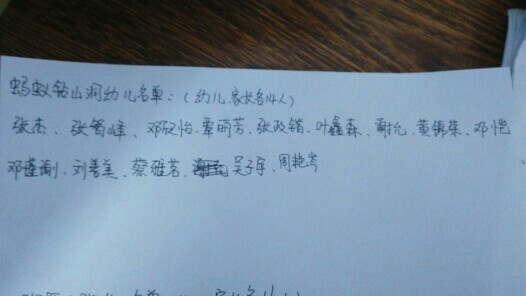 蚂蚁钻山洞幼儿名单:(幼儿、家长各14人)
张杰、张 峰、邓欣怡、覃丽芳、张政锴、叶鑫森、谢 、黄锦荣、邓恺
邓 、刘善美、蔡雅茗、吴子军、周艳岑